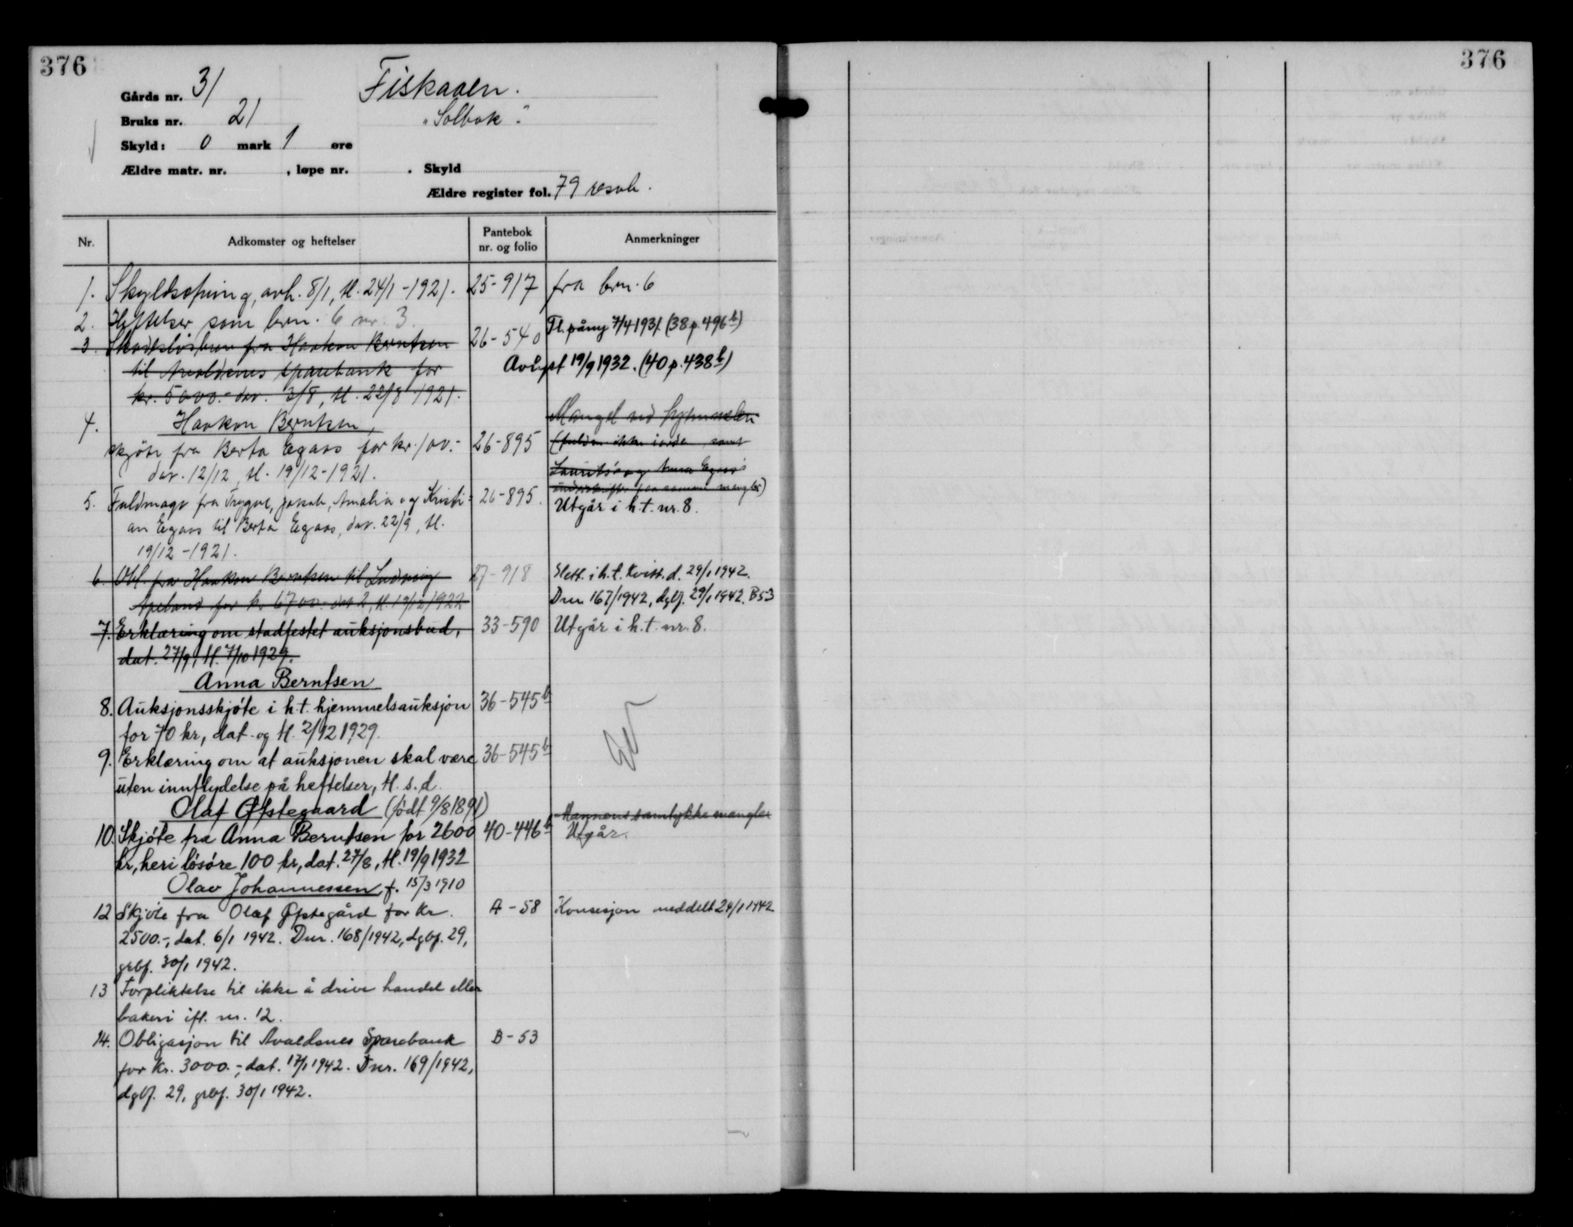 376
376
Gårds nr. 31
Fiskaaen.
Bruks nr. 21
"Solbak".
Skyld: 0 mark 1 øre
Ældre matr. nr. , løpe nr. . Skyld
Ældre register fol. 79
Nr. Adkomster og heftelser Pantebok nr. og folio Anmerkninger
1. Skyldsetning, avh. 8/1, tl. 24/1-1921. 25-917 fra brn. 6
2. Heftelser som brn. 6 nr. 3.
3. Skadesløsbrev fra Haakon Berntsen 26-540 Tl. påny 7/4 1931 (38 p. 496b)
til Avaldsnes sparebank for Avlyst 19/9 1932. (40 p. 438b)
kr. 5000.- dat. 3/8, tl. 22/8 1921.
4. Haakon Berntsen, Mangel ved hjemmelen
skjøte fra Berta Egaas for kr. 100.- 26-895
dat. 12/12, tl. 19/12-1921.
5. Fuldmagt fra Trygve, Jakob, Amalia og Kristi- 26-895. Utgår i h.t. nr. 8.
an Egaas til Berta Egaas, dat. 22/9, tl.
19/12-1921.
6. Obl. fra Haakon Berntsen til Ludvig 27-918 Slett. i h.t. kvitt. d. 29/1 1942.
for kr 6700.- tl. 19/12 1922 Dnr. 167/1942, dgbf. 29/1 1942. B53
7. Erklæring om stadfestet auksjonsbud, 33-590 Utgår i h.t. nr. 8.
dat. 27/9, tl. 7/10 1929.
Anna Berntsen
8. Auksjonsskjøte i h.t. hjemmelsauksjon 36-545b
for 70 kr, dat. og tl. 2/12 1929.
9. Erklæring om at auksjonen skal være 36-545b
uten innflydelse på heftelser, tl. s.d.
Olaf Øfstegaard (født 9/8 1891)
Mannens samtykke mangler
10. Skjøte fra Anna Berntsen for 2600 40-446b Utgår.
kr, heri løsøre 100 kr, dat. 27/8, tl. 19/9 1932
Olav Johannessen, f. 15/3 1910
12 Skjøte fra Olaf Øfstegård for kr. A-58 Konsesjon meddelt 24/1 1942
2500.-, dat. 6/1 1942. Dnr. 168/1942, dgbf. 29,
grbf. 30/1 1942.
13 Forpliktelse til ikke å drive handel eller
bakeri ifl. nr. 12.
14. Obligasjon til Avaldsnes Sparebank B-53
for kr. 3000.-, dat. 17/1 1942. Dnr. 169/1942,
dgbf. 29, grbf. 30/1 1942.